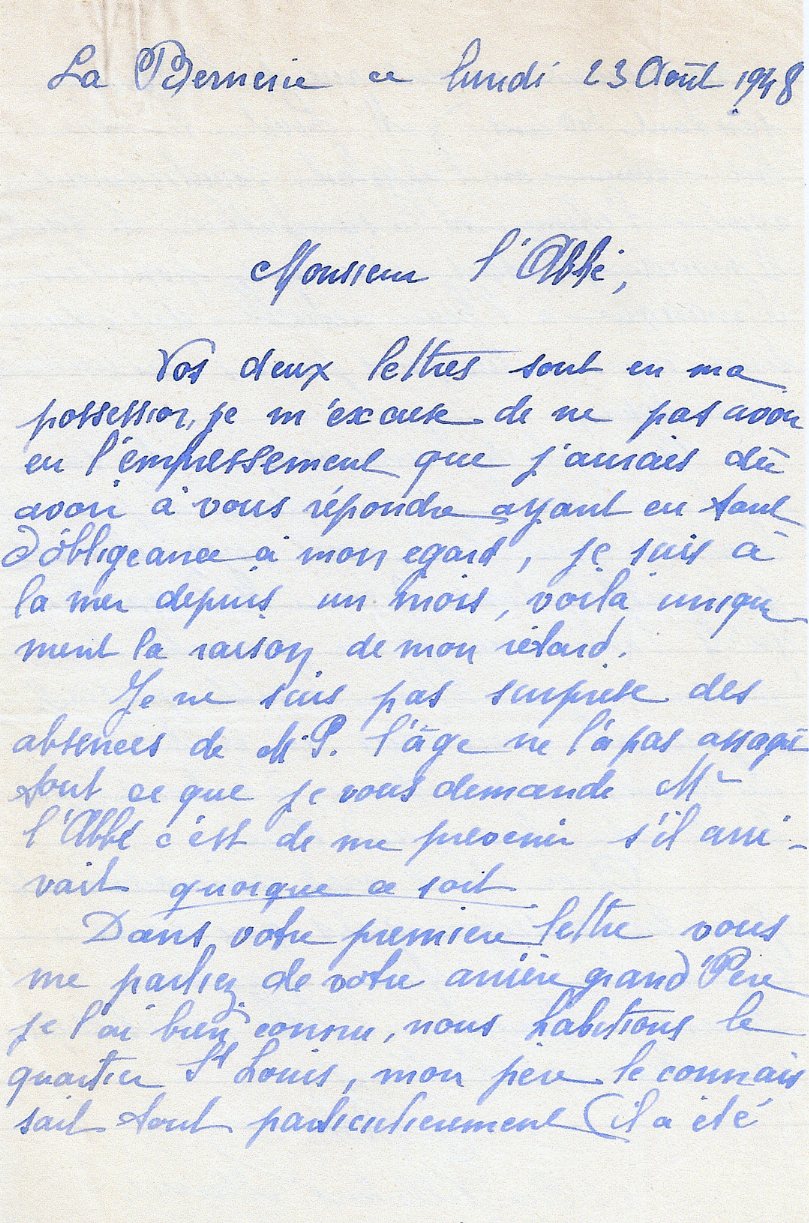 La Bernerie ce lundi 23 Août 1948
Monsieur l'Abbé,
Vos deux lettres sont en ma
possession, je m'excuse de ne pas avoir
eu l'empressement que j'aurais dû
avoir à vous répondre ayant eu tant
d'obligeance à mon egard, je suis à
la mer depuis un mois, voilà unique
ment la raison de mon retard.
Je ne suis pas surprise des
absences de M.P. l'âge ne l'a pas assagi
tout ce que je vous demande Mr
l'Abbé c'est de me prevenir s'il arri-
vait quoique ce soit
Dans votre premiere lettre vous
me parliez de votre arrière grand'Père
je l'ai bien connu, nous habitions le
quartier St Louis, mon père le connais
sait tout particulierement (il a été